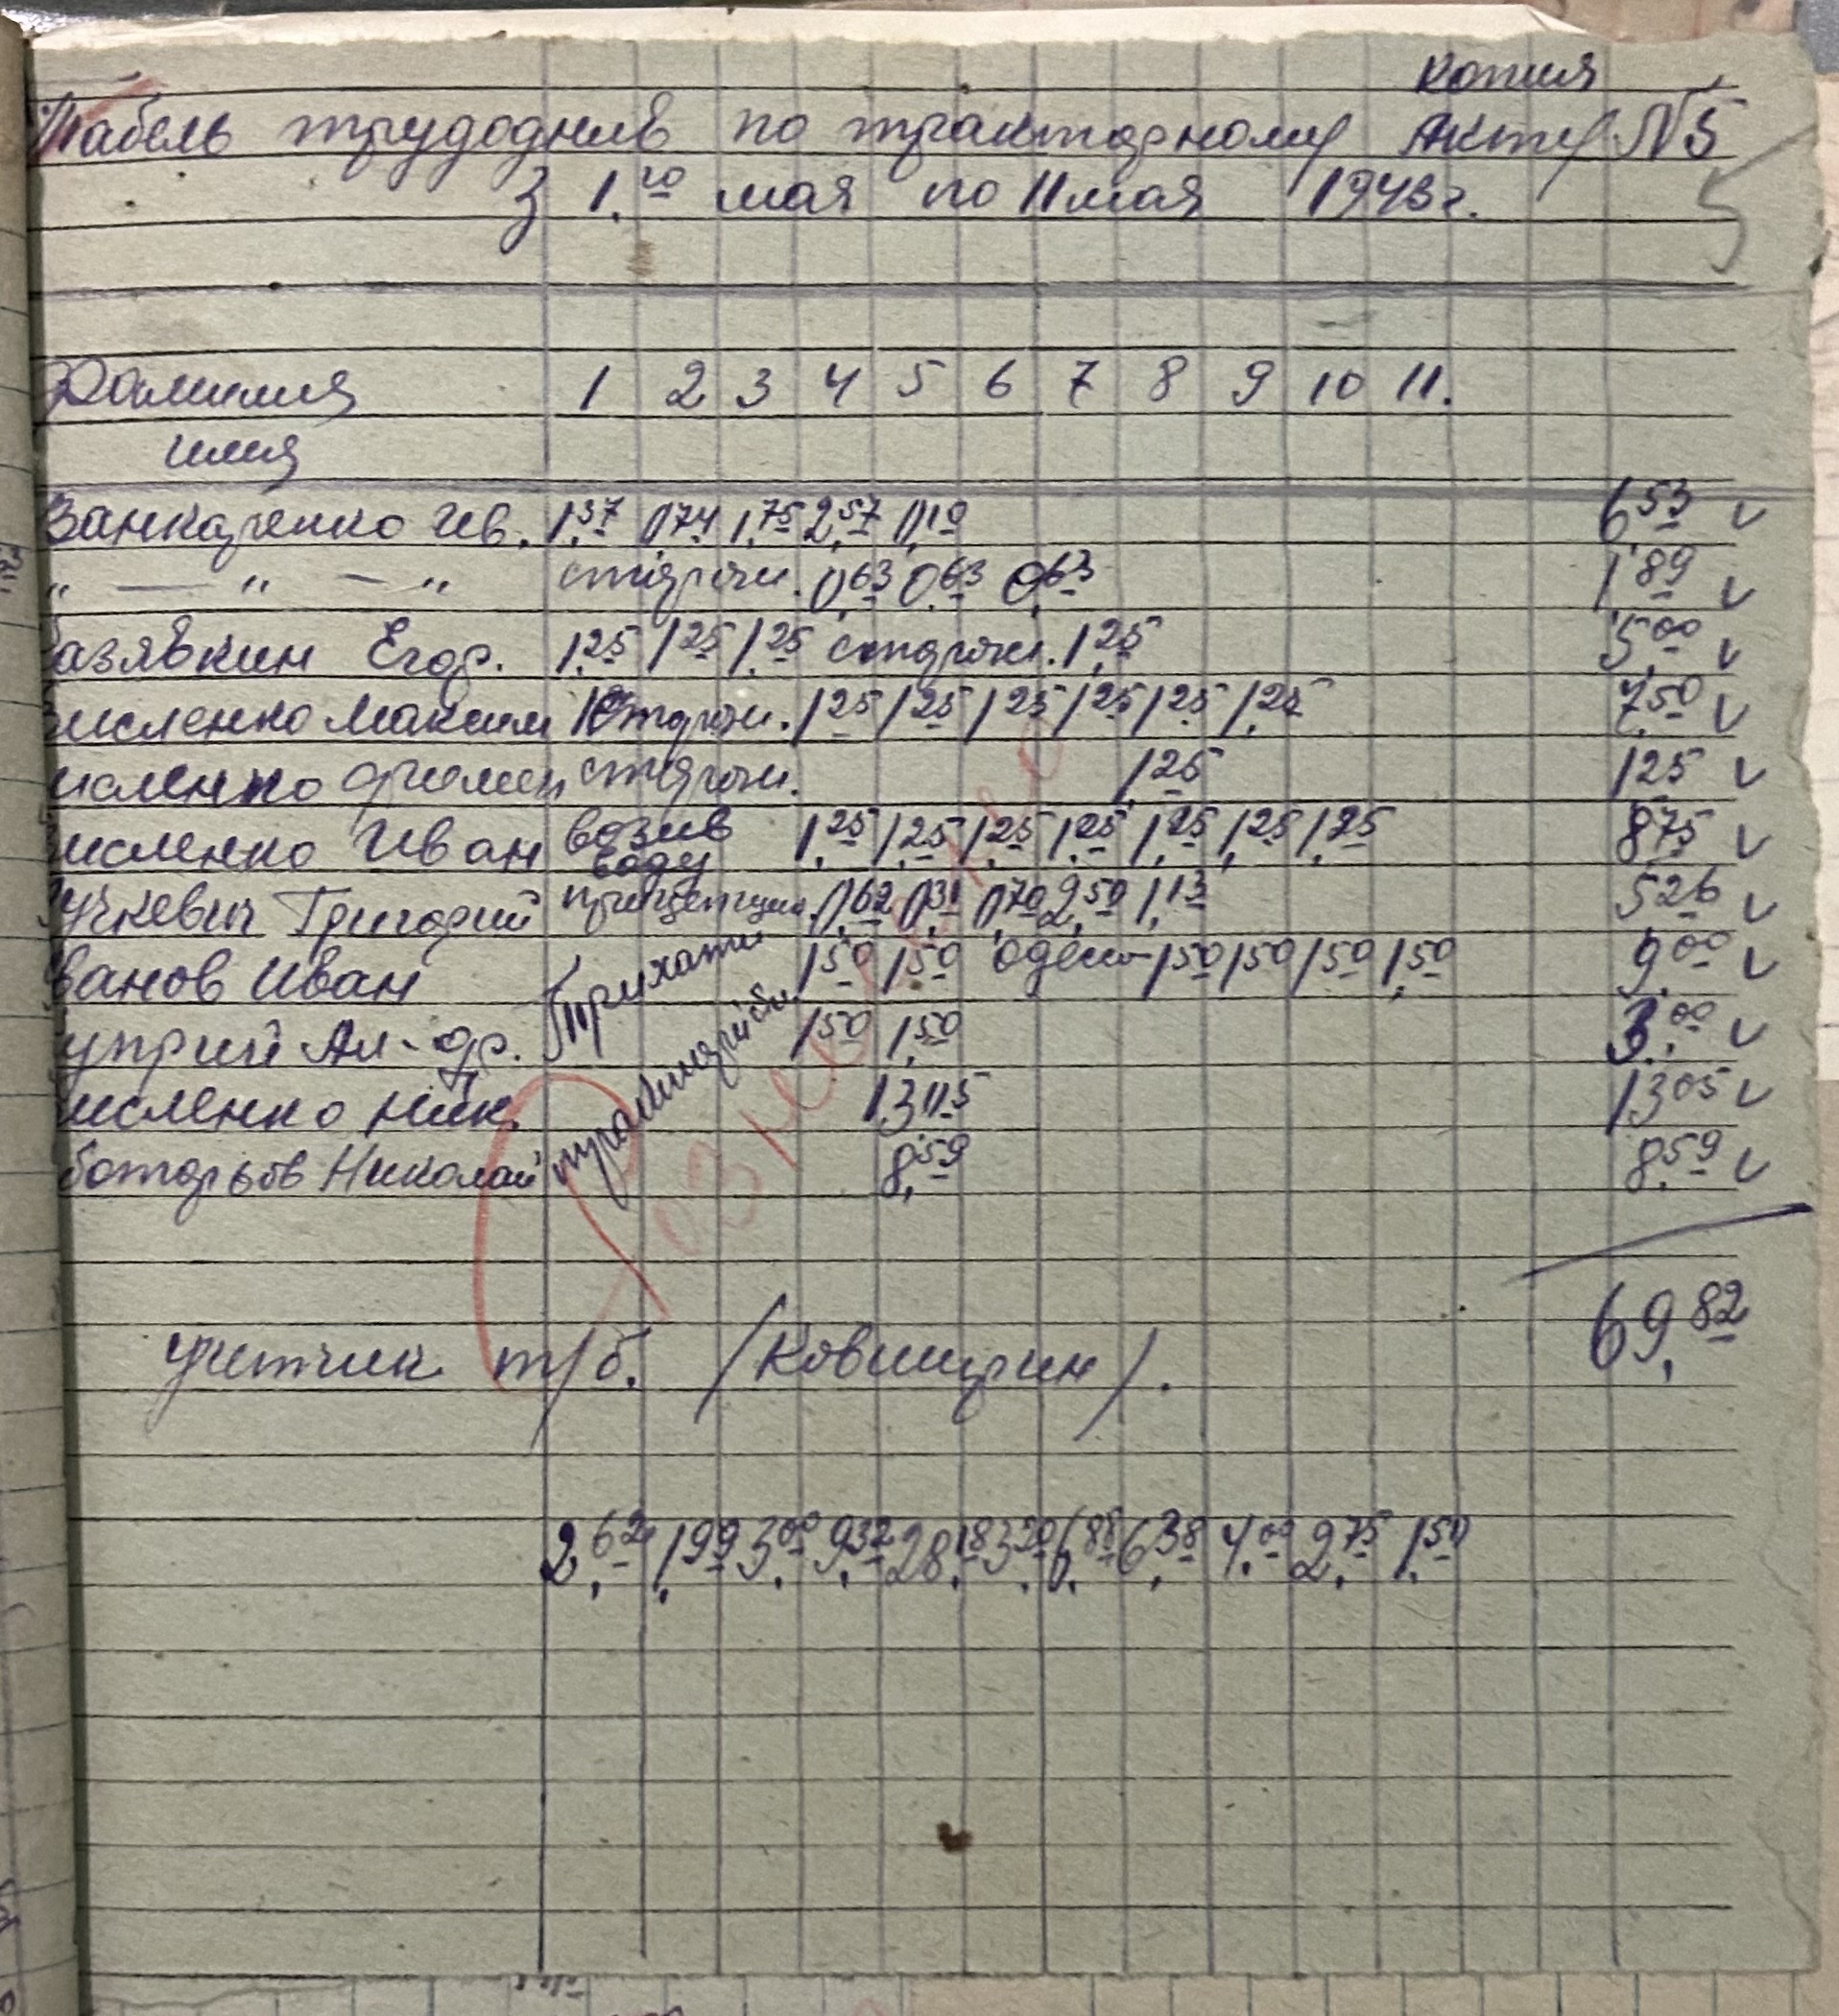 копия
Табель трудоднив по тракторному Акту N5
З 1.го мая по 11 мая 1943 г.
5
Фамилия 1 2 3 4 5 6 7 8 9 10 11.
имя
Ив. 1,37 0,74 1,75 2,57 0,10 6,53 v
" — " — " сторож. 0,63 0,63 0,63 1,89 v
азявкин Егор. 1,25 1,25 1,25 сторож. 1,25 5,00 v
исленко Максим сторож. 1,25 1,25 1,25 1,25 1,25 1,25 7,50 v
исленко сторож. 1,25 1,25 v
исленко Иван возив воду 1,25 1,25 1,25 1,25 1,25 1,25 1,25 8,75 v
учкевич Григорий прицепщик 0,62 0,31 0,70 2,50 1,13 5,26 v
ванов Иван 1,50 1,50 1,50 1,50 1,50 1,50 9,00 v
уприй Ал-др. 1,50 1,50 3,00 v
исленко Ник. 13,05 13,05 v
Николай 8,59 8,59 v
69,82
учетчик т/б. /Ковширин/.
2,62 1,99 3,00 9,32 28,18 3,20 6,88 6,38 4,00 2,75 1,50